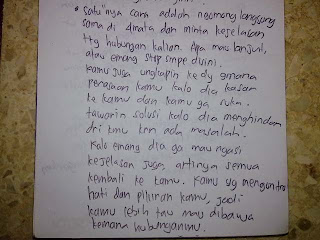 • Satu²nya cara adalah ngomong langsung
sama di dinata dan minta kejelasan
ttg hubungan kalian. Apa mau lanjut,
atau emang stop smpe disini.
Kamu juga ungkapin ke dy gmana
perasaan kamu kalo dia kasar
ke kamu dan kamu ga suka.
tawarin solusi kalo dia menghindar
dri kmu krn ada masalah.
Kalo emang dia ga mau ngasi
kejelasan juga, artinya semua
kembali ke kamu. Kamu yg mengontro
hati dan pikiran kamu, jadi
kamu lebih tau mau dibawa
kemana hubunganmu.